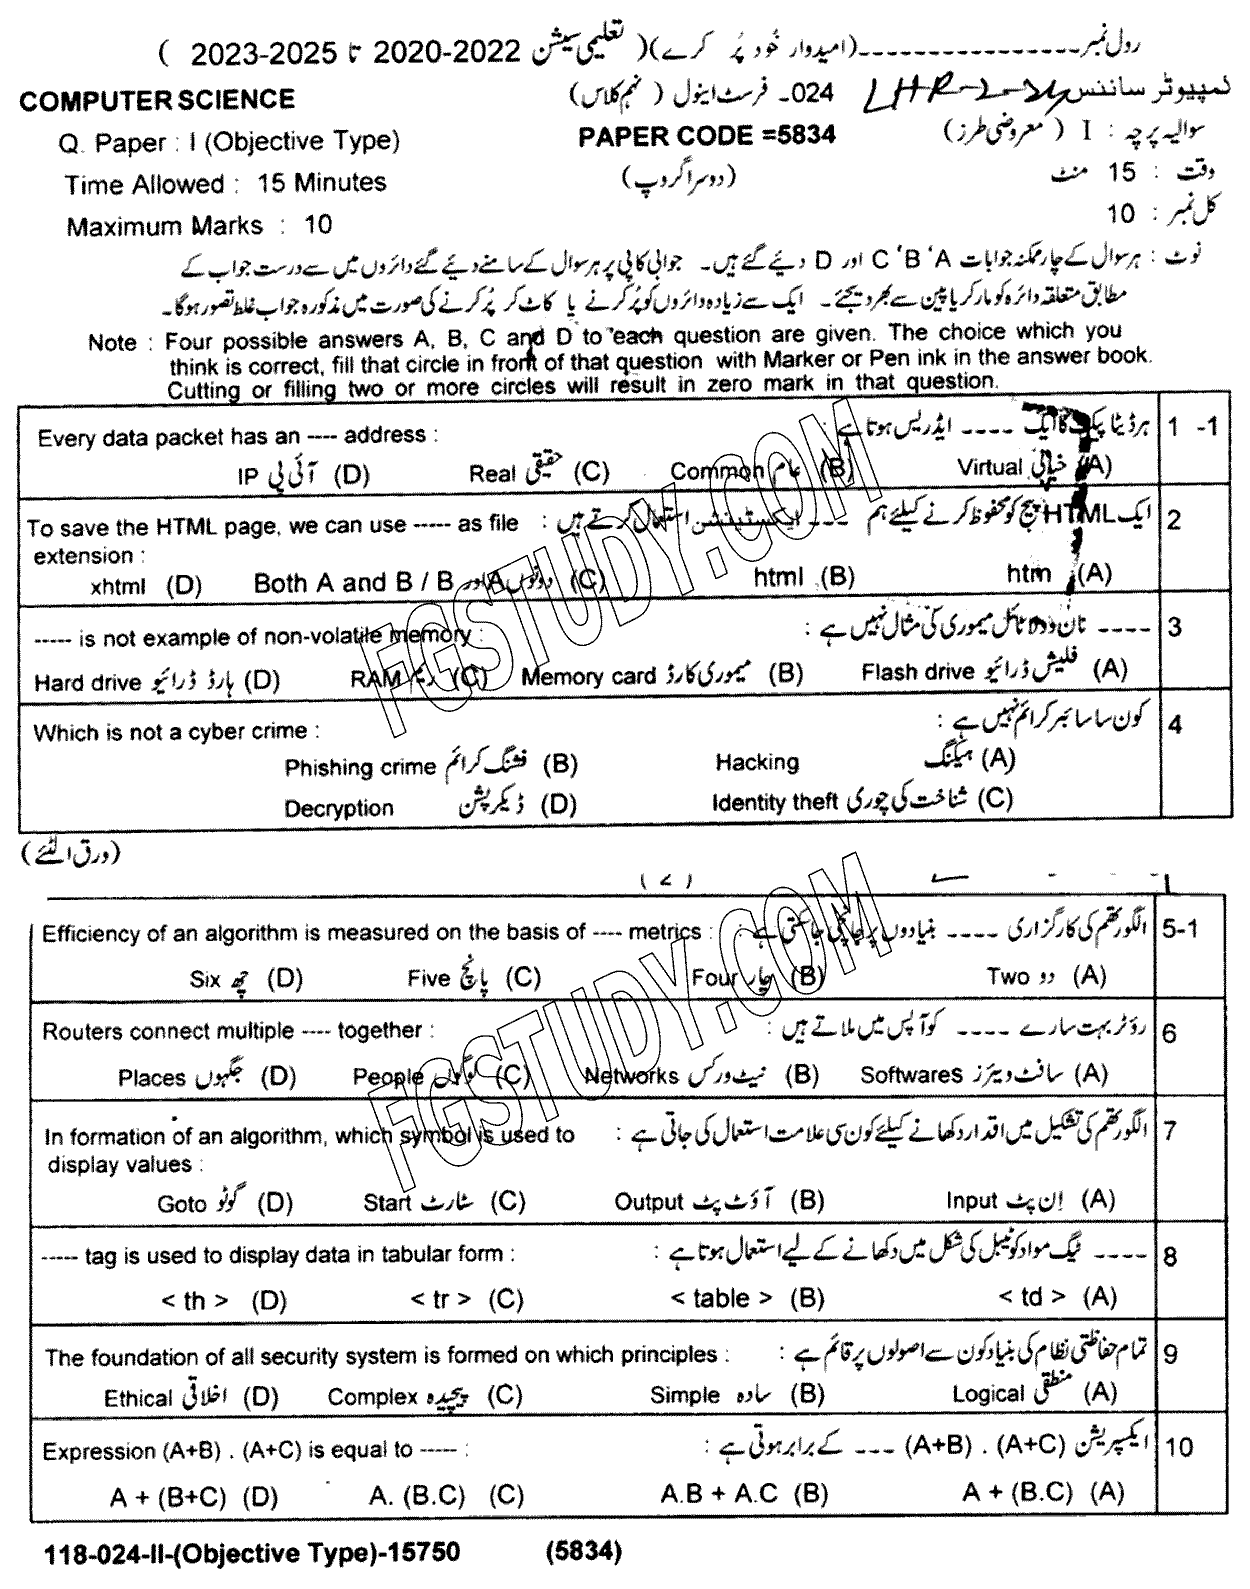 رول نمبر ----------------(امیدوار خُود پُر کرے)( تعلیمی سیشن 2022-2020 تا 2025-2023 )
COMPUTER SCIENCE 024۔ فرسٹ اینول ( نہم کلاس) کمپیوٹر سائنس LHR-2-24
Q. Paper : I (Objective Type) PAPER CODE =5834 سوالیہ پرچہ : I ( معروضی طرز)
Time Allowed : 15 Minutes (دوسرا گروپ) وقت : 15 منٹ
Maximum Marks : 10 کل نمبر : 10
نوٹ : ہر سوال کے چار ممکنہ جوابات A ‘B ‘C اور D دیئے گئے ہیں۔ جوابی کاپی پر ہر سوال کے سامنے دیئے گئے دائروں میں سے درست جواب کے
مطابق متعلقہ دائرہ کو مارکر یا پین سے بھر دیجئے۔ ایک سے زیادہ دائروں کو پُر کرنے یا کاٹ کر پُر کرنے کی صورت میں مذکورہ جواب غلط تصور ہوگا۔
Note : Four possible answers A, B, C and D to each question are given. The choice which you
think is correct, fill that circle in front of that question with Marker or Pen ink in the answer book.
Cutting or filling two or more circles will result in zero mark in that question.
Every data packet has an ---- address : ہر ڈیٹا پیکٹ کا ایک ---- ایڈریس ہوتا ہے : 1 -1
IP آئی پی (D) Real حقیقی (C) Common عام (B) Virtual خیالی (A)
To save the HTML page, we can use ----- as file ایک HTML پیج کو محفوظ کرنے کیلئے ہم ---- ایکسٹینشن استعمال کرتے ہیں : 2
extension :
xhtml (D) Both A and B / B اور A دونوں (C) html (B) htm (A)
----- is not example of non-volatile memory : ---- نان وولاٹائل میموری کی مثال نہیں ہے : 3
Hard drive ہارڈ ڈرائیو (D) RAM ریم (C) Memory card میموری کارڈ (B) Flash drive فلیش ڈرائیو (A)
Which is not a cyber crime : کون سا سائبر کرائم نہیں ہے : 4
Phishing crime فشنگ کرائم (B) Hacking ہیکنگ (A)
Decryption ڈیکرپشن (D) Identity theft شناخت کی چوری (C)
(ورق الٹئے)
( 2 )
Efficiency of an algorithm is measured on the basis of ---- metrics : الگورتھم کی کارگزاری ---- بنیادوں پر جانچی جاسکتی ہے : 5-1
Six چھ (D) Five پانچ (C) Four چار (B) Two دو (A)
Routers connect multiple ---- together : روٹر بہت سارے ---- کو آپس میں ملاتے ہیں : 6
Places جگہوں (D) People لوگوں (C) Networks نیٹ ورکس (B) Softwares سافٹ ویئرز (A)
In formation of an algorithm, which symbol is used to الگورتھم کی تشکیل میں اقدار دکھانے کیلئے کون سی علامت استعمال کی جاتی ہے : 7
display values :
Goto گوٹو (D) Start سٹارٹ (C) Output آؤٹ پٹ (B) Input اِن پٹ (A)
----- tag is used to display data in tabular form : ---- ٹیگ مواد کو ٹیبل کی شکل میں دکھانے کے لیے استعمال ہوتا ہے : 8
< th > (D) < tr > (C) < table > (B) < td > (A)
The foundation of all security system is formed on which principles : تمام حفاظتی نظام کی بنیاد کون سے اصولوں پر قائم ہے : 9
Ethical اخلاقی (D) Complex پیچیدہ (C) Simple سادہ (B) Logical منطقی (A)
Expression (A+B) . (A+C) is equal to ----- : ایکسپریشن (A+B) . (A+C) --- کے برابر ہوتی ہے : 10
A + (B+C) (D) A. (B.C) (C) A.B + A.C (B) A + (B.C) (A)
118-024-II-(Objective Type)-15750 (5834)
FGSTUDY.COM
FGSTUDY.COM